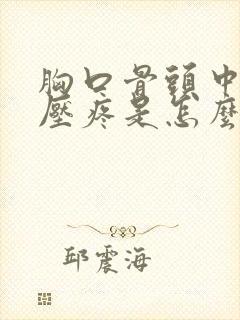 胸口骨頭中
壓疼是怎麼
邱震海